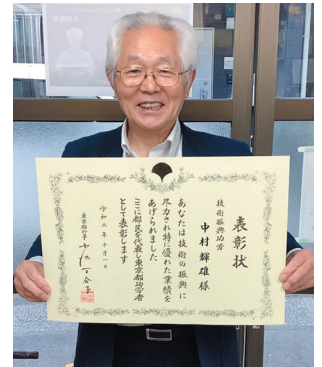 表彰状
技術振興功労
中村輝雄様
あなたは技術の振興に
尽力され特に優れた業績を
あげられました
ここに都民を代表し東京都功労者
として表彰します
令和二年十月一日
東京都知事 小池百合子